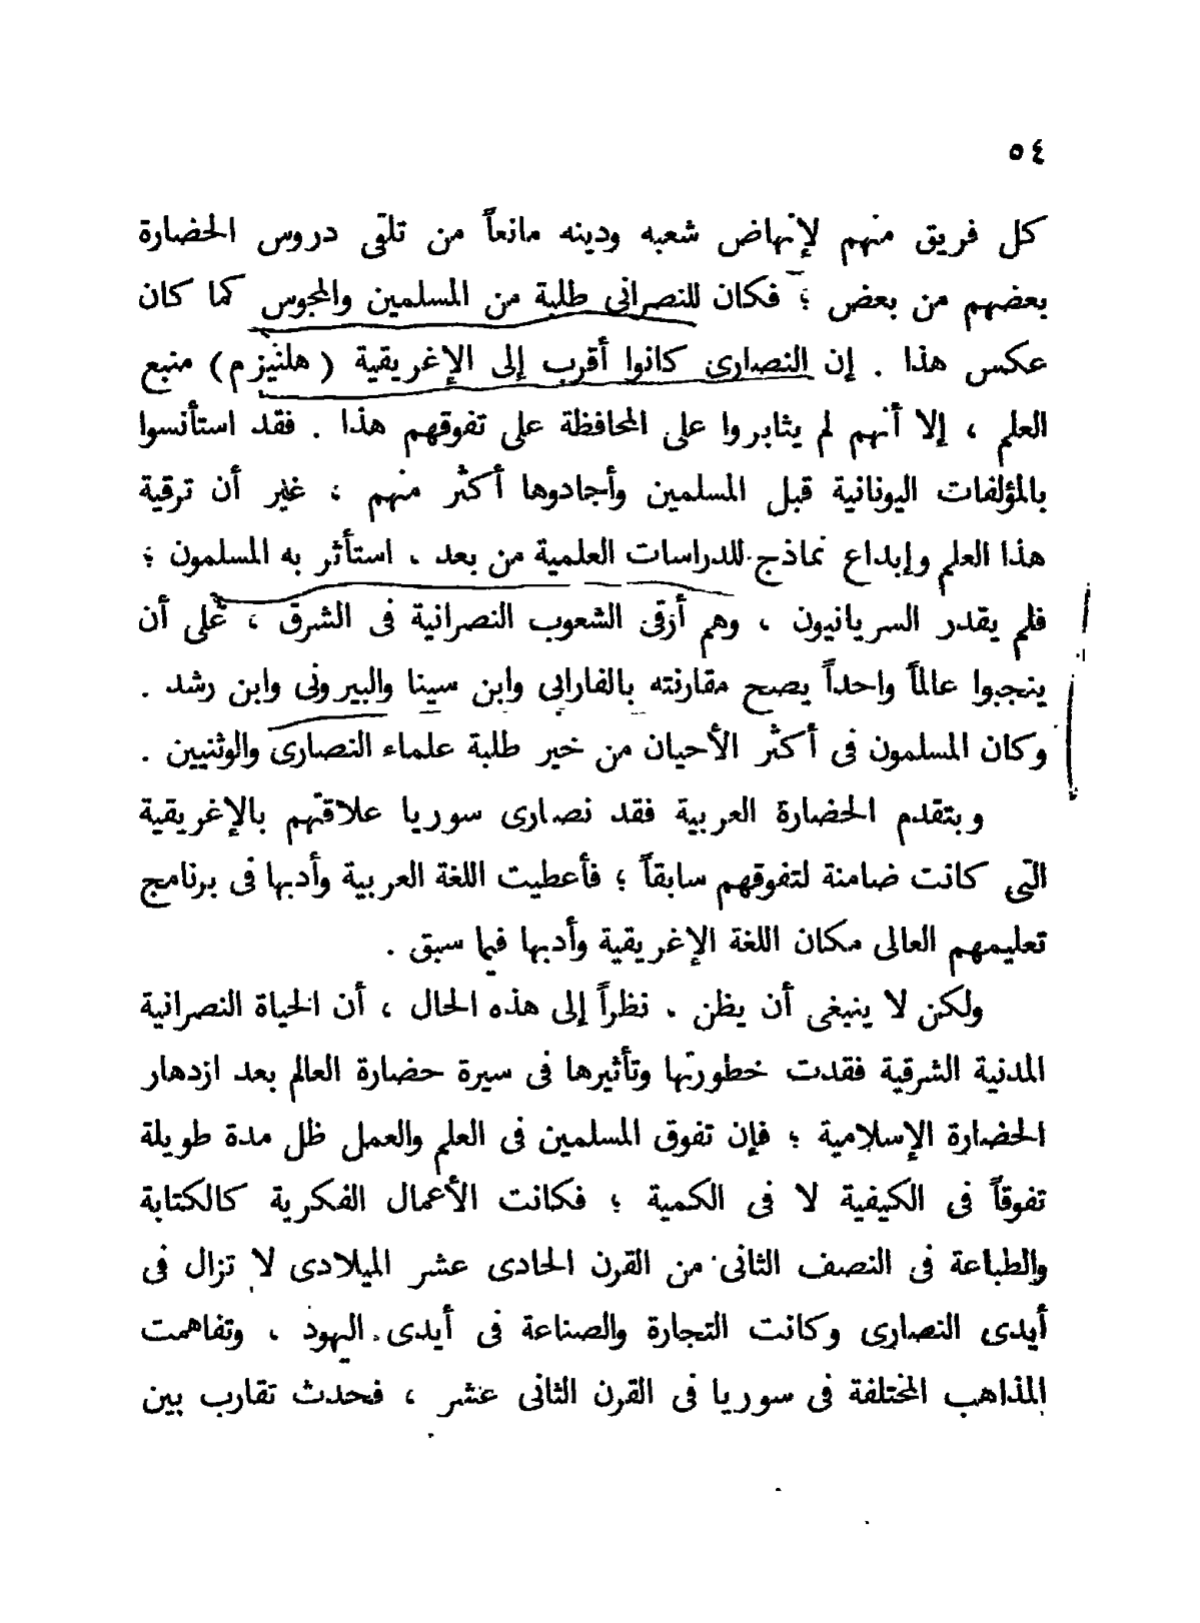 ٥٤
كل فريق منهم لإنهاض شعبه ودينه مانعاً من تلقى دروس الحضارة
بعضهم من بعض ؛ فكان للنصرانى طلبة من المسلمين والمجوس كما كان
عكس هذا . إن النصارى كانوا أقرب إلى الإغريقية ( هلنيزم ) منبع
العلم ، إلا أنهم لم يثابروا على المحافظة على تفوقهم هذا . فقد استأنسوا
بالمؤلفات اليونانية قبل المسلمين وأجادوها أكثر منهم ؛ غير أن ترقية
هذا العلم وإبداع نماذج للدراسات العلمية من بعد ، استأثر به المسلمون ؛
فلم يقدر السريانيون ، وهم أرقى الشعوب النصرانية فى الشرق ، على أن
ينجبوا عالماً واحداً يصح مقارنته بالفارابى وابن سينا والبيرونى وابن رشد .
وكان المسلمون فى أكثر الأحيان من خير طلبة علماء النصارى والوثنيين .
وبتقدم الحضارة العربية فقد نصارى سوريا علاقتهم بالإغريقية
التى كانت ضامنة لتفوقهم سابقاً ؛ فأعطيت اللغة العربية وأدبها فى برنامج
تعليمهم العالى مكان اللغة الإغريقية وأدبها فيما سبق .
ولكن لا ينبغى أن يظن ، نظراً إلى هذه الحال ، أن الحياة النصرانية
المدنية الشرقية فقدت خطورتها وتأثيرها فى سيرة حضارة العالم بعد ازدهار
الحضارة الإسلامية ؛ فإن تفوق المسلمين فى العلم والعمل ظل مدة طويلة
تفوقاً فى الكيفية لا فى الكمية ؛ فكانت الأعمال الفكرية كالكتابة
والطباعة فى النصف الثانى من القرن الحادى عشر الميلادى لا تزال فى
أيدى النصارى وكانت التجارة والصناعة فى أيدى اليهود ، وتفاهمت
المذاهب المختلفة فى سوريا فى القرن الثانى عشر ، فحدث تقارب بين